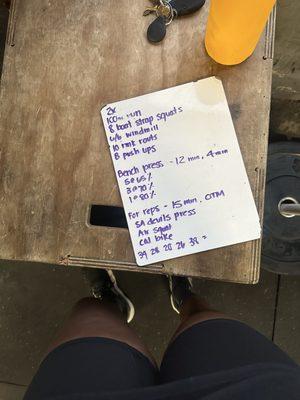 2x
100m run
8 boot strap squats
4/6 windmill
10 rmk routs
8 push ups
Bench press - 12 min, 4 min
5 @ 65%
3 @ 70%
1 @ 80%
For reps - 15 min. OTM
SA devils press
Air squat
Cal bike
39 28 28 26 38 =